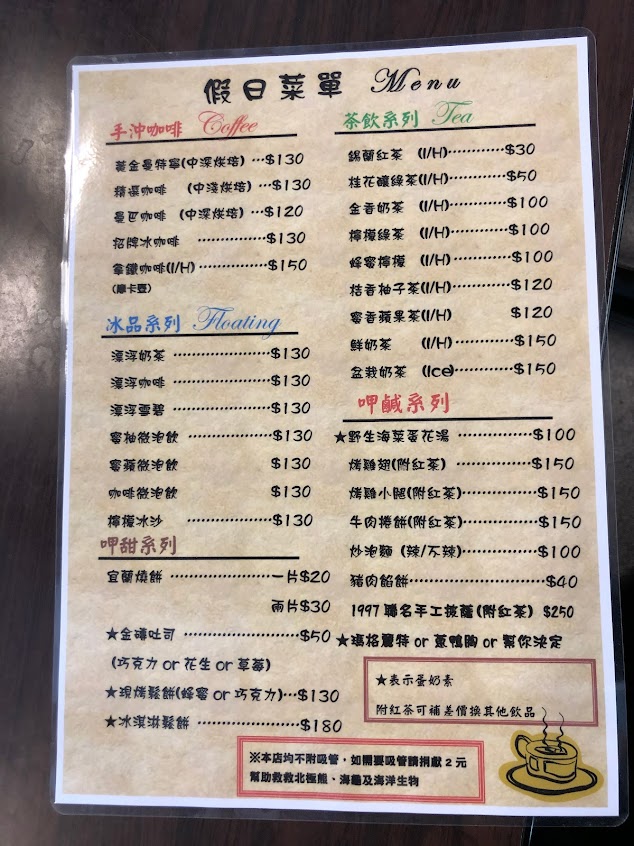 假日菜單 Menu
手沖咖啡 Coffee
黃金曼特寧(中深烘焙) …$130
精選咖啡 (中淺烘焙) …$130
曼巴咖啡 (中深烘焙) …$120
招牌冰咖啡 ……………$130
拿鐵咖啡(I/H) ……………$150
(摩卡壺)
冰品系列 Floating
漂浮奶茶 …………………$130
漂浮咖啡 …………………$130
漂浮雪碧 …………………$130
蜜柚微泡飲 ………………$130
蜜蘋微泡飲 $130
咖啡微泡飲 $130
檸檬冰沙 ………………$130
呷甜系列
宜蘭燒餅 …………………一片$20
兩片$30
★金磚吐司 ……………………$50
(巧克力 or 花生 or 草莓)
★現烤鬆餅(蜂蜜 or 巧克力)…$130
★冰淇淋鬆餅 …………………$180
茶飲系列 Tea
錫蘭紅茶 (I/H)…………$30
桂花釀綠茶 (I/H)…………$50
金香奶茶 (I/H)…………$100
檸檬綠茶 (I/H)…………$100
蜂蜜檸檬 (I/H)…………$100
桔香柚子茶(I/H)…………$120
蜜香蘋果茶(I/H) $120
鮮奶茶 (I/H)…………$150
盆栽奶茶 (Ice)…………$150
呷鹹系列
★野生海菜蛋花湯 ……………$100
烤雞翅(附紅茶) ……………$150
烤雞小腿(附紅茶)……………$150
牛肉捲餅(附紅茶)……………$150
炒泡麵 (辣/不辣)……………$100
豬肉餡餅………………………$40
1997 聯名手工披薩(附紅茶) $250
★瑪格麗特 or 蔥鴨胸 or 幫你決定
★表示蛋奶素
附紅茶可補差價換其他飲品
※本店均不附吸管,如需要吸管請捐獻 2 元
幫助救救北極熊、海龜及海洋生物